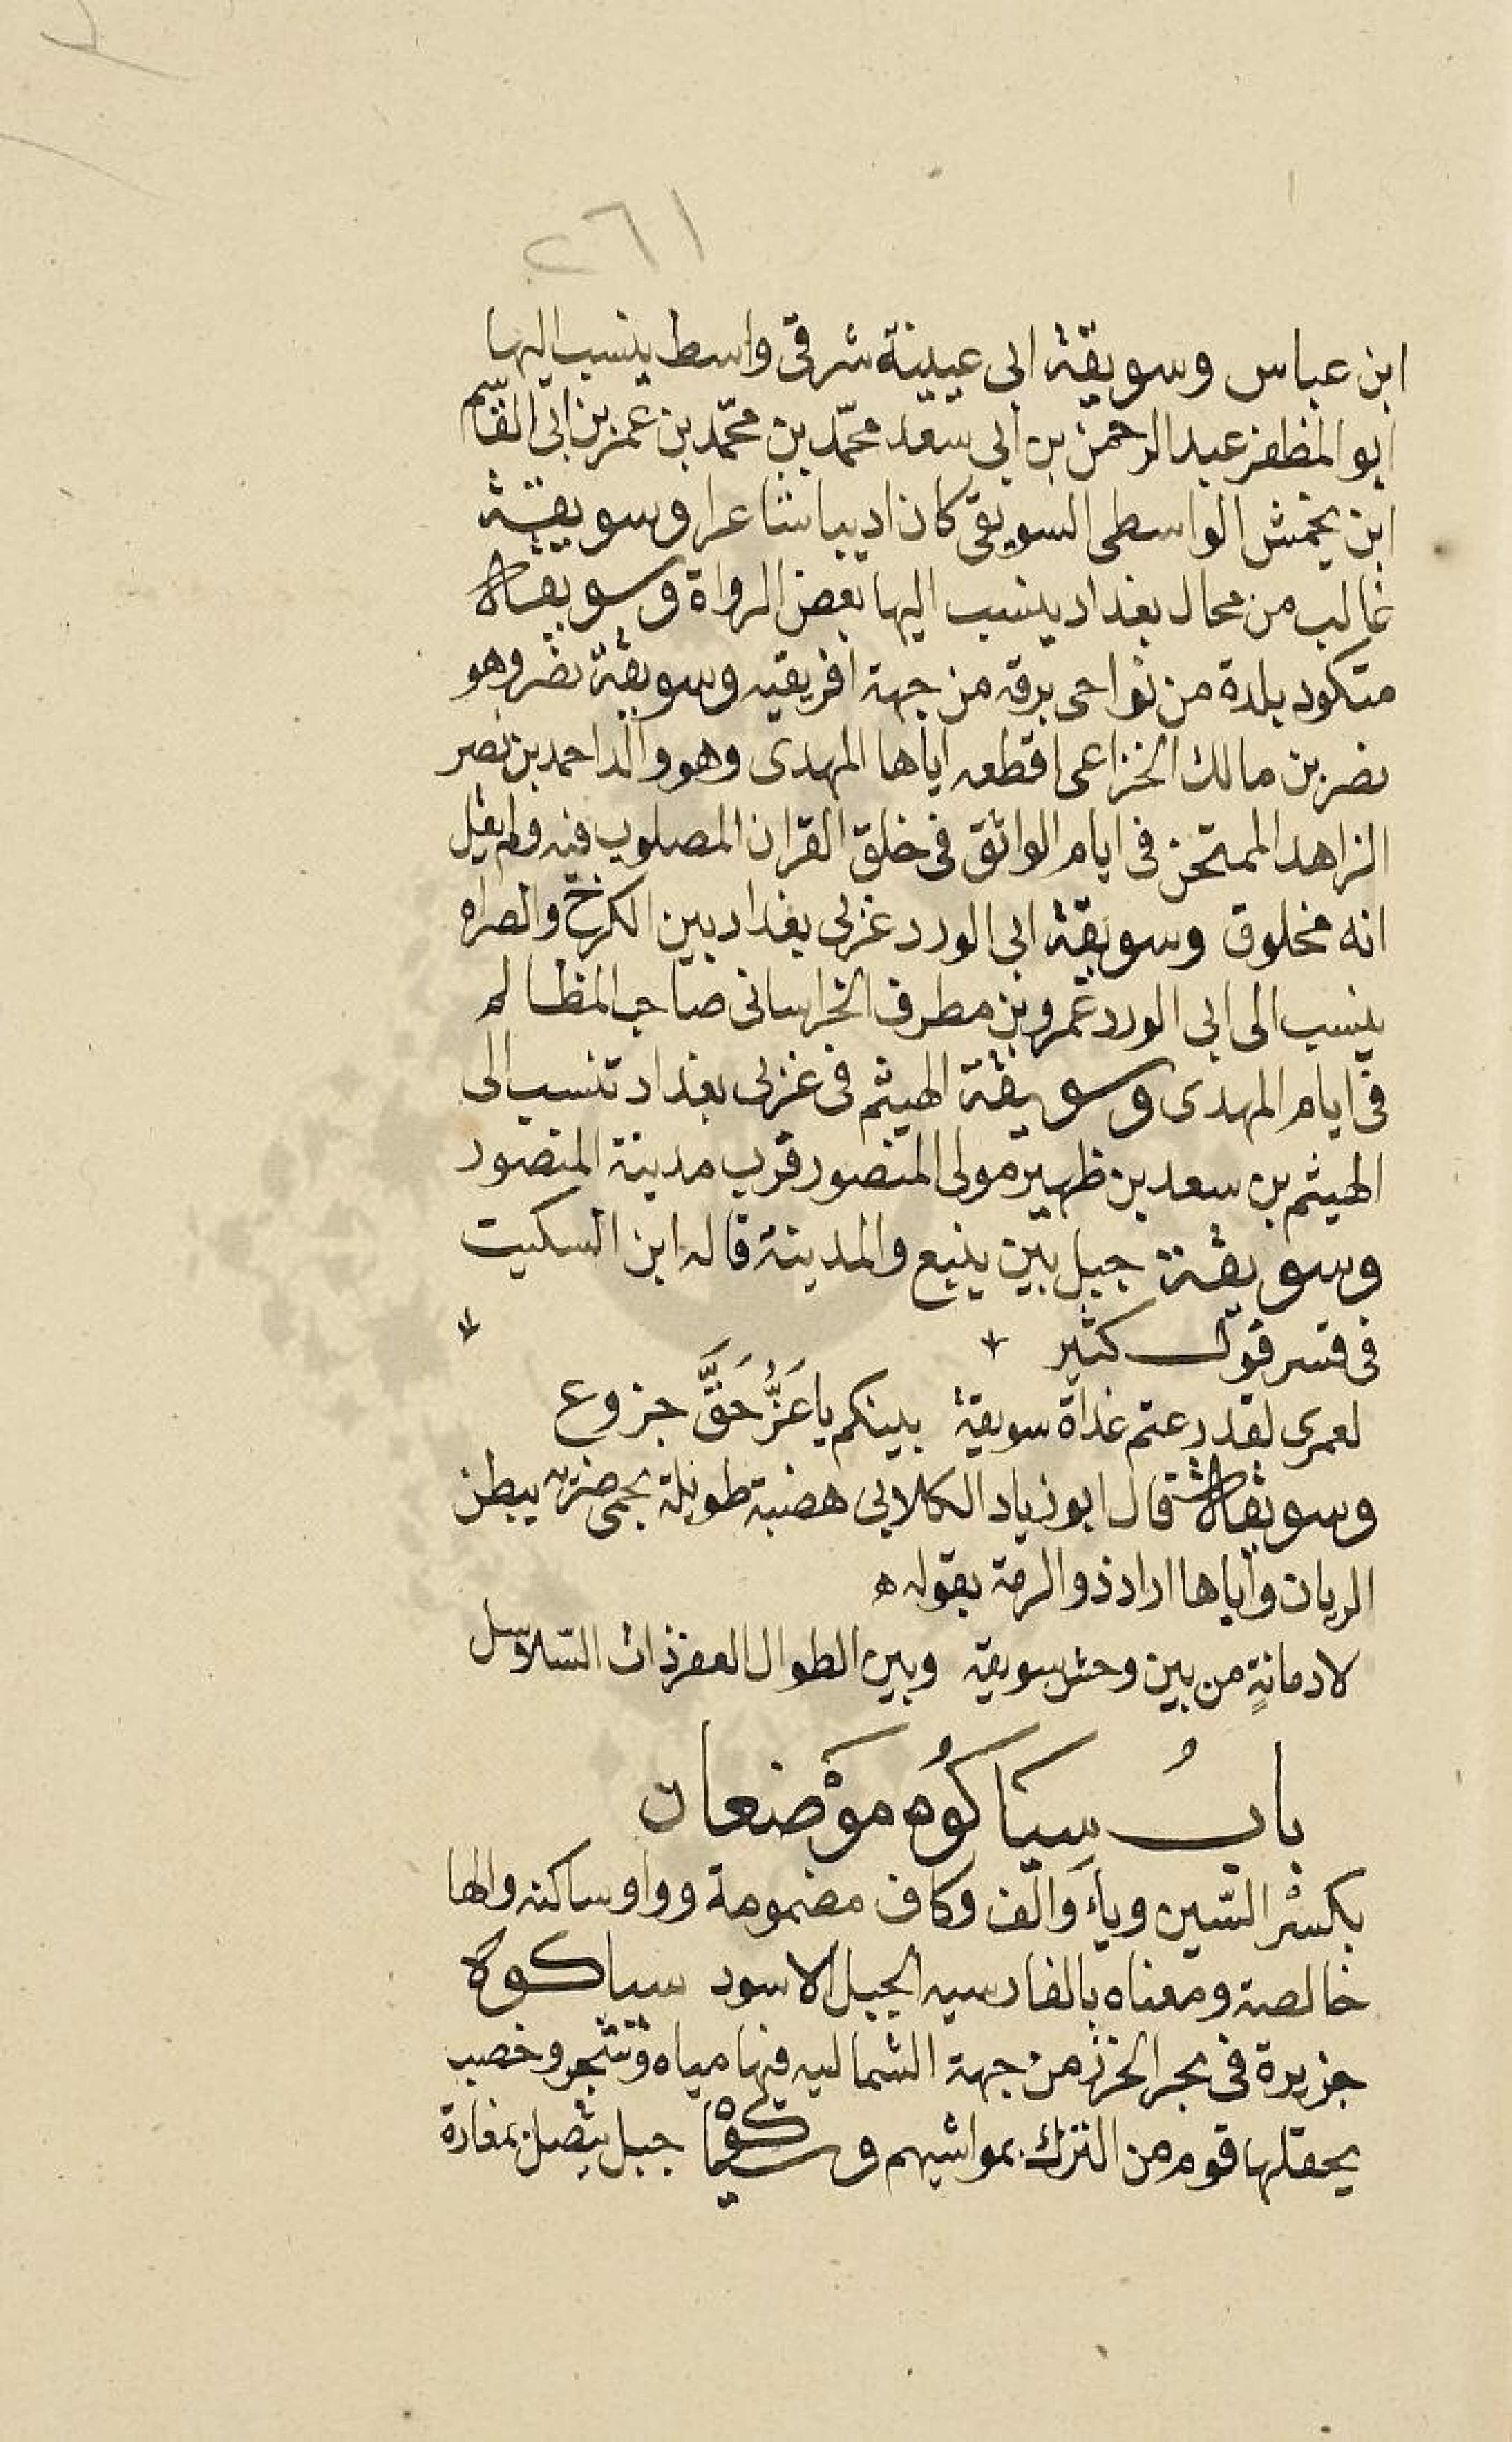 ٢٦١
ابن عباس وسويقة ابى عيينة شرقى واسط ينسب اليها
ابو المظفر عبد الرحمن بن ابى سعد محمّد بن محمّد بن عمر بن ابى القاسم
ابن يخمش الواسطى السويقى كان اديبا شاعرا وسويقة
غالب من محال بغداد ينسب اليها بعض الرواة وسويقة
متكود بلدة من نواحى برقه من جهة افريقيه وسويقة نصر وهو
نصر بن مالك الخزاعى اقطعه اياها المهدى وهو والد احمد بن نصر
الزاهد الممتحن فى ايام الواثق فى خلق القران المصلوب فيه ولم يقل
انه مخلوق وسويقة ابى الورد غربى بغداد بين الكرخ والصراه
ينسب الى ابى الورد عمرو بن مطرف الخراسانى صاحب المظالم
فى ايام المهدى وسويقة الهيثم فى غربى بغداد تنسب الى
الهيثم بن سعد بن ظهير مولى المنصور قرب مدينة المنصور
وسويقة جبل بين ينبع والمدينة قاله ابن السكيت
فى فسر قول كثير
لعمرى لقد رعتم غداة سويقة بينكم يا عَزُّ حَقَّ جزوع
وسويقة قال ابو زياد الكلابى هضبة طويلة بحمى ضريه ببطن
الريان واياها اراد ذو الرمة بقوله
لادمانةٍ من بين وحش سويقة وبين الطوال العفر ذات السّلاسل
بابُ سِيَاكُوُه مَوْضعان
بكسْر السّين وياء وَالف وكاف مضمومة وواو ساكنه والها
خالصة ومعناه بالفارسيه الجبل الاسود سياكوه
جزيرة فى بحر الخزر من جهة الشماليه فيها مياه وشجر وخصب
يحتلها قوم من الترك بمواشيهم وسياكوه جبل يتصل بمفازة